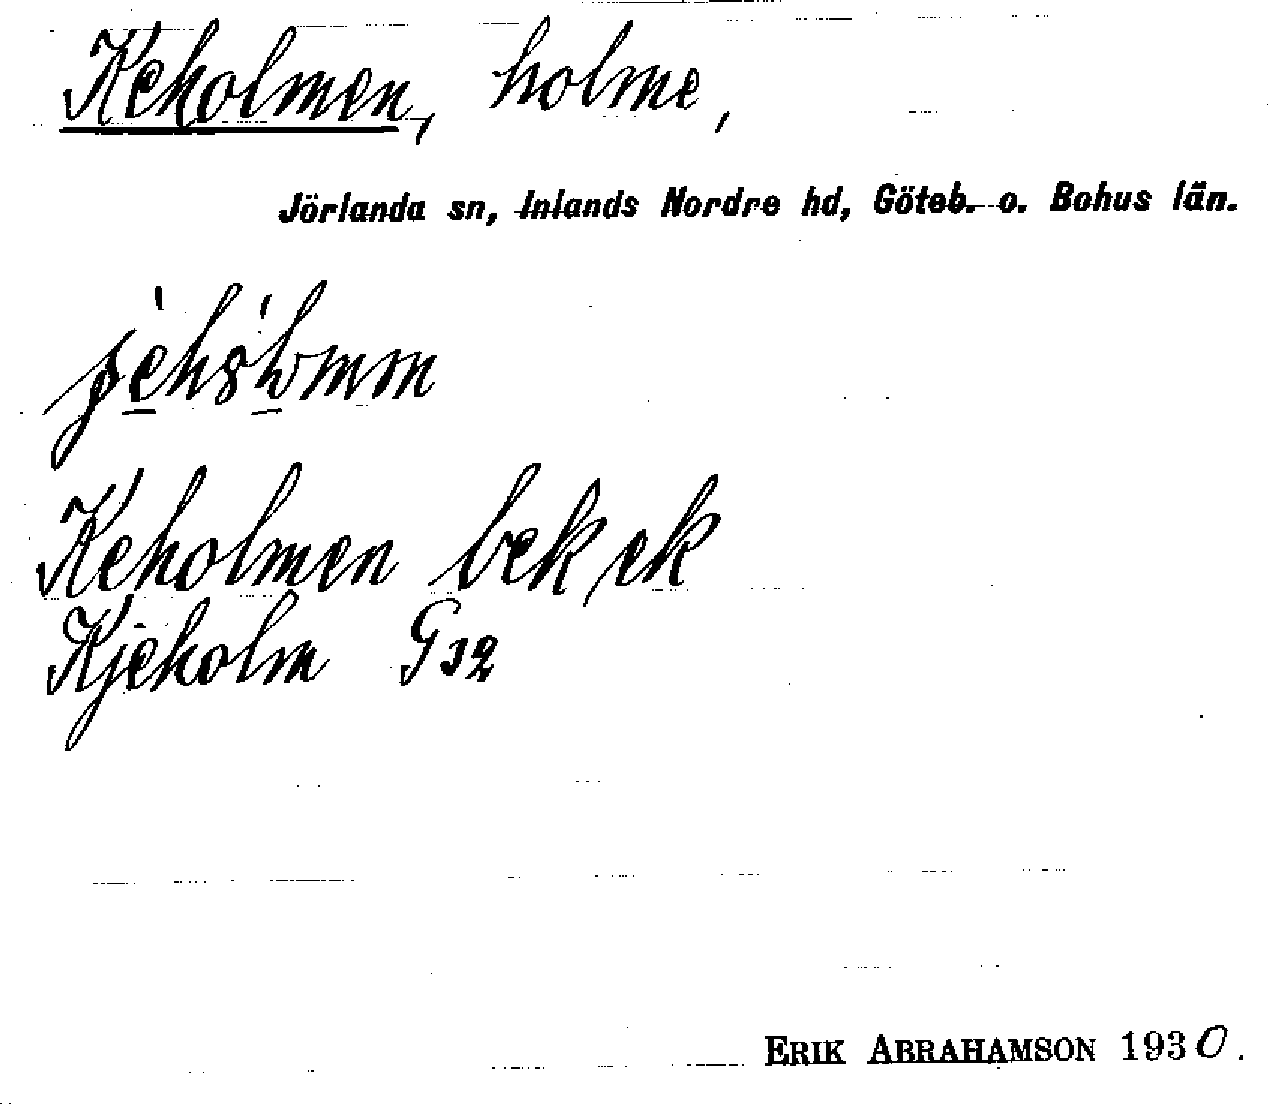 Keholmen, holme,
Jörlanda sn, Inlands Nordre hd, Göteb. o. Bohus län.
Keholmen bek, ek
Kjeholm G32
ERIK ABRAHAMSON 1930.